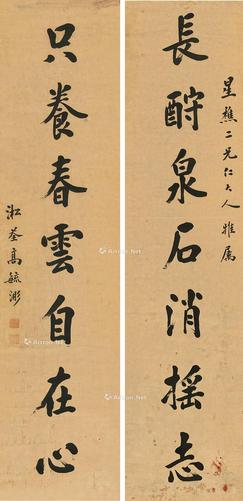 星樵二兄仁大人雅屬
長酧泉石消摇志
只養春雲自在心
淞荃高毓浵